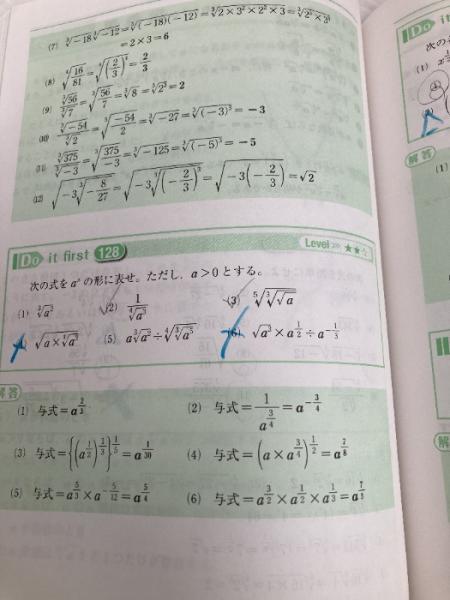 (7) ∛−18 ∛−12 = ∛(−18)(−12) = ∛2×3²×2²×3 = ∛2³×3³
= 2×3 = 6
(8) ⁴√16/81 = ⁴√(2/3)⁴ = 2/3
(9) ∛56/∛7 = ∛56/7 = ∛8 = ∛2³ = 2
(10) ∛−54/∛2 = ∛−54/2 = ∛−27 = ∛(−3)³ = −3
(11) ∛375/∛−3 = ∛375/−3 = ∛−125 = ∛(−5)³ = −5
(12) √−3∛−8/27 = √−3∛(−2/3)³ = √−3(−2/3) = √2
Do it first 128 Level ≫ ★★☆
次の式を aˣ の形に表せ。ただし，a>0とする。
(1) ∛a² (2) 1/⁴√a³ (3) ⁵√∛√a
√a×⁴√a³ (5) a∛a² ÷ ⁴√∛a⁵ (6) √a³×a^1/2÷a^−1/3
解答
(1) 与式=a^2/3 (2) 与式=1/a^3/4=a^−3/4
(3) 与式={(a^1/2)^1/3}^1/5=a^1/30 (4) 与式=(a×a^3/4)^1/2=a^7/8
(5) 与式=a^5/3×a^−5/12=a^5/4 (6) 与式=a^3/2×a^1/2×a^1/3=a^7/3
Do i
次の
(1)
解答
(1)